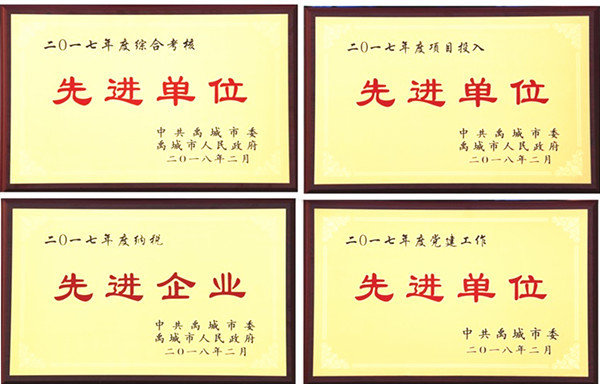 二〇一七年度综合考核
先进单位
中共禹城市委
禹城市人民政府
二〇一八年二月
二〇一七年度项目投入
先进单位
中共禹城市委
禹城市人民政府
二〇一八年二月
二〇一七年度纳税
先进企业
中共禹城市委
禹城市人民政府
二〇一八年二月
二〇一七年度党建工作
先进单位
中共禹城市委
二〇一八年二月